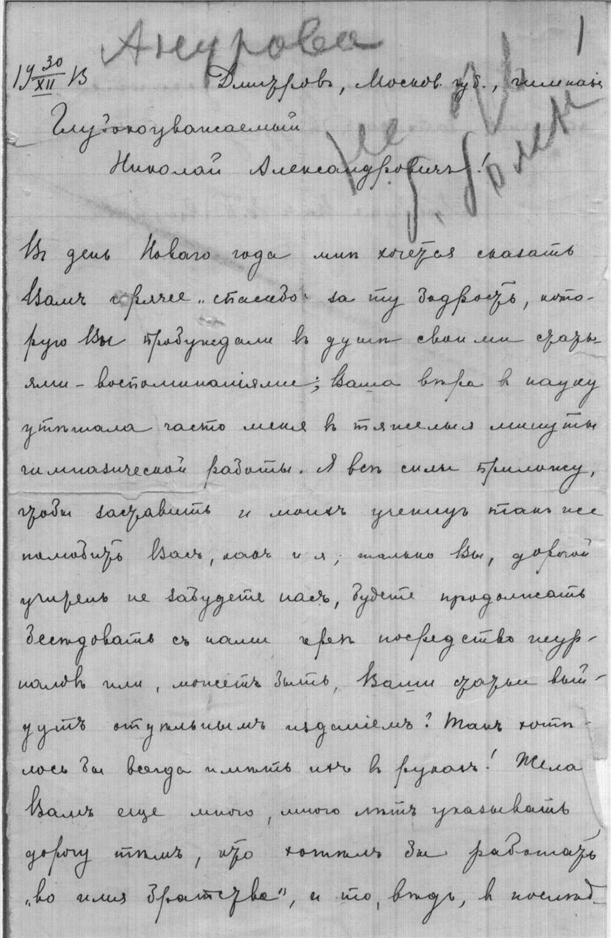 Анурова
1
19 30/XII 13
Дмитровъ, Москов. губ., гимназія
Глубокоуважаемый
Николай Александровичъ!
Въ день Новаго года мнѣ хочется сказать
Вамъ горячее „спасибо“ за ту бодрость, кото-
рую Вы пробуждали въ душѣ своими стать-
ями-воспоминаніями; Ваша вѣра въ науку
утѣшала часто меня въ тяжелыя минуты
гимназической работы. Я всѣ силы приложу,
чтобы заставить и моихъ ученицъ такъ же
полюбить Васъ, какъ и я; только Вы, дорогой
учитель не забудете насъ, будете продолжать
бесѣдовать съ нами чрезъ посредство жур-
наловъ или, можетъ быть, Ваши статьи вый-
дутъ отдѣльнымъ изданіемъ? Такъ хотѣ-
лось бы всегда имѣть ихъ въ рукахъ! Жела
Вамъ еще много, много лѣтъ указывать
дорогу тѣмъ, кто хотѣлъ бы работать
„во имя братства“, и то, вѣдь, въ послѣд-